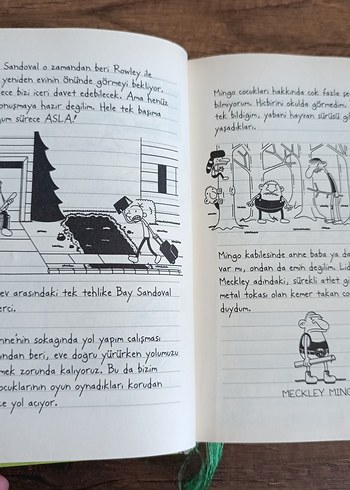 Sandoval o zamandan beri Rowley ile
yeniden evinin önünde görmeyi bekliyor.
ece bizi içeri davet edebilecek. Ama henüz
onuşmaya hazır değilim. Hele tek başıma
um sürece ASLA!
ev arasındaki tek tehlike Bay Sandoval
erci.
nne'nin sokağında yol yapım çalışması
ından beri, eve doğru yürürken yolumuzu
mek zorunda kalıyoruz. Bu da bizim
ocuklarının oyun oynadıkları korudan
e yol açıyor.
Mingo çocukları hakkında çok fazla şe
bilmiyorum. Hiçbirini okulda görmedim.
tek bildiğim, yabani hayvan sürüsü gi
yaşadıkları.
Mingo kabilesinde anne baba ya da
var mı, ondan da emin değilim. Lid
Meckley adındaki, sürekli atlet gi
metal tokası olan kemer takan ço
duydum.
MECKLEY MING